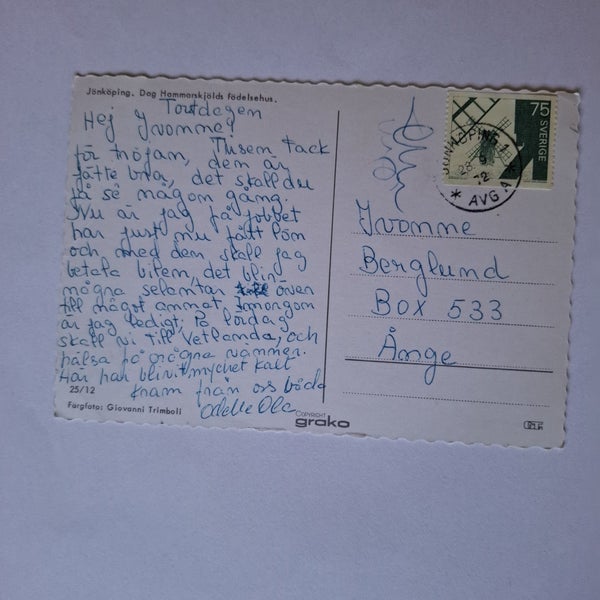 Jönköping. Dag Hammarskjölds födelsehus.
Tortdagen
Hej Yvonne!
Tusen tack
för tröjan, dem är
jätte bra, det skall du
få se någom gång.
Nu är jag på jobbet
har just nu fått löm
och med dem skall jag
betala bilem, det blir
mågra selamtar över
till något ammat, imorgom
är jag ledig. På lördag
skall vi till Vetlanda, och
hälsa på mågra vämmer.
Här har blivit mycket kallt
Kram från oss båda
Odette Ole
25/12
Färgfoto: Giovanni Trimboli
COPYRIGHT
grako
75 SVERIGE
JÖNKÖPING 1
28 9
72
* AVG A *
Yvonne
Berglund
BOX 533
Ånge